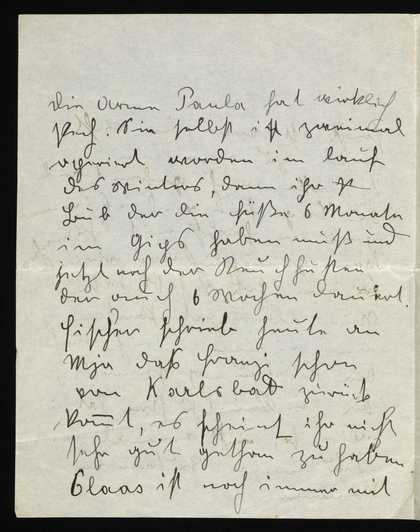 die arme Paula hat wirklich
Pech. Sie selbst ist zweimal
operiert worden im lauf
des winters, dann ihr
Bub der die Füße 6 Monate
im Gips haben muß und
jetzt noch der Keuchhusten
der auch 6 Wochen dauert.
Fischer schrieb heute an
Mja daß Franzi schon
von Karlsbad zurück
kom̅t, es scheint ihr nicht
sehr gut gethan zu haben
Claas ist noch immer mit